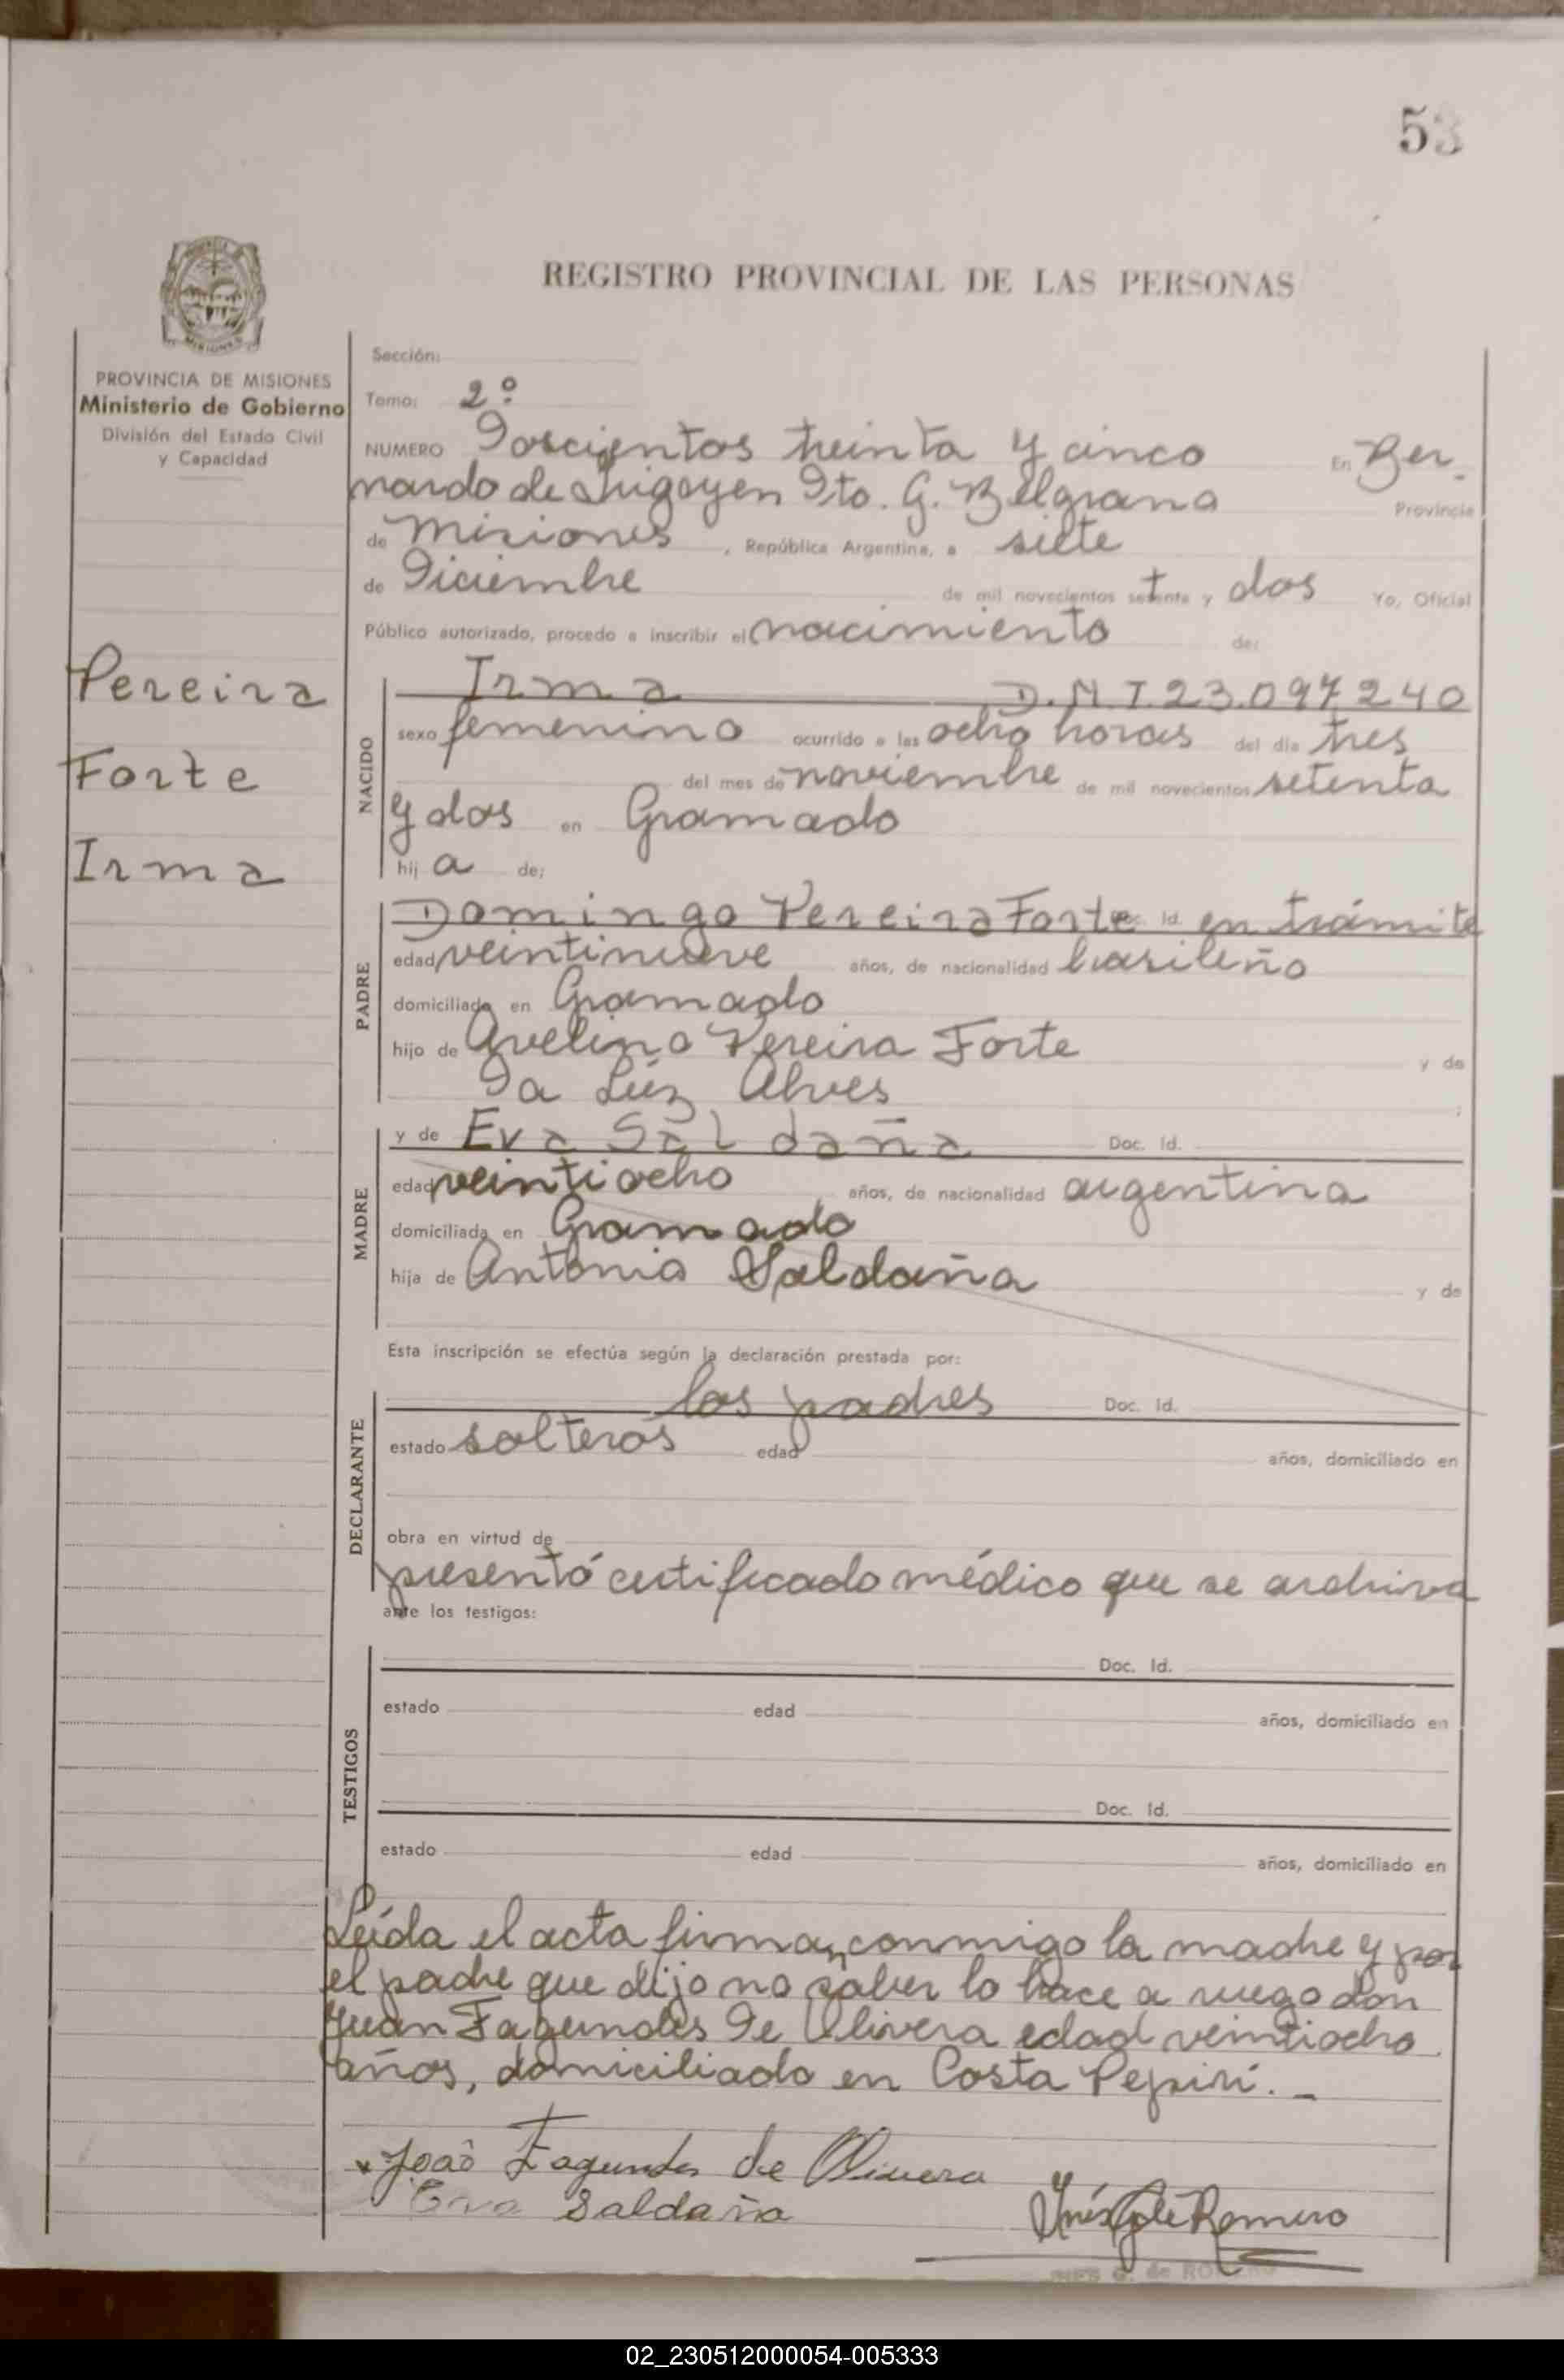 53
REGISTRO PROVINCIAL DE LAS PERSONAS
MISIONES
PROVINCIA DE MISIONES
Ministerio de Gobierno
División del Estado Civil
y Capacidad
Pereira
Forte
Irma
Sección:
Tomo: 2º
NUMERO Doscientos treinta y cinco En Ber-
nardo de Irigoyen Dto. G. M. Belgrano Provincia
de Misiones, República Argentina, a siete
de Diciembre de mil novecientos setenta y dos Yo, Oficial
Público autorizado, procedo a inscribir el nacimiento de:
NACIDO
Irma D.N.I. 23.097.240
sexo femenino ocurrido a las ocho horas del día tres
del mes de noviembre de mil novecientos setenta
y dos en Gramado
hij a de:
PADRE
Domingo Pereira Forte Doc. Id. en trámite
edad veintinueve años, de nacionalidad brasileño
domiciliado en Gramado
hijo de Avelino Pereira Forte y de
Da Luz Alves ;
MADRE
y de Eva Saldaña Doc. Id.
edad veintiocho años, de nacionalidad argentina
domiciliada en Gramado
hija de Antonia Saldaña y de
Esta inscripción se efectúa según la declaración prestada por:
DECLARANTE
los padres Doc. Id.
estado solteros edad años, domiciliado en
obra en virtud de
presentó certificado médico que se archiva
ante los testigos:
TESTIGOS
Doc. Id.
estado edad años, domiciliado en
Doc. Id.
estado edad años, domiciliado en
Leída el acta firman conmigo la madre y por
el padre que dijo no saber lo hace a ruego don
Juan Fagundes De Olivera edad veintiocho
años, domiciliado en Costa Pepirí. -
João Fagundes de Olivera
Eva Saldaña
Inés de Romero
INES G. de RO
02_230512000054-005333